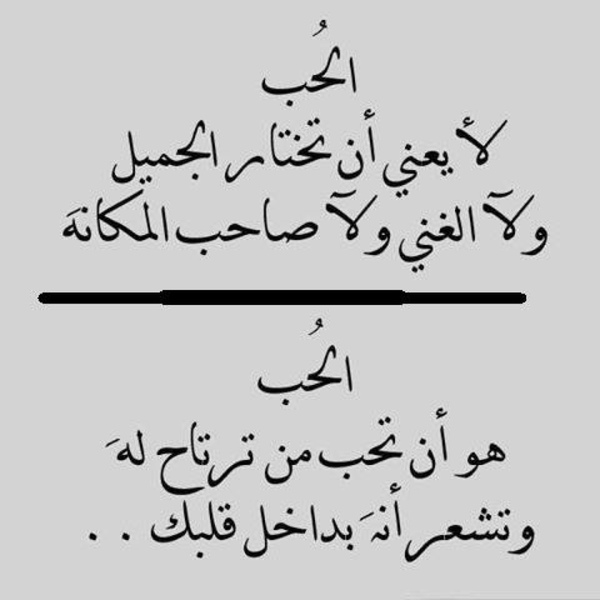 الحُب
لأ يعني أن تختار الجميل
ولآ الغني ولآ صاحب المكانهَ
الحُب
هو أن تحب من ترتاح لهَ
وتشعر أنهَ بداخل قلبك . .